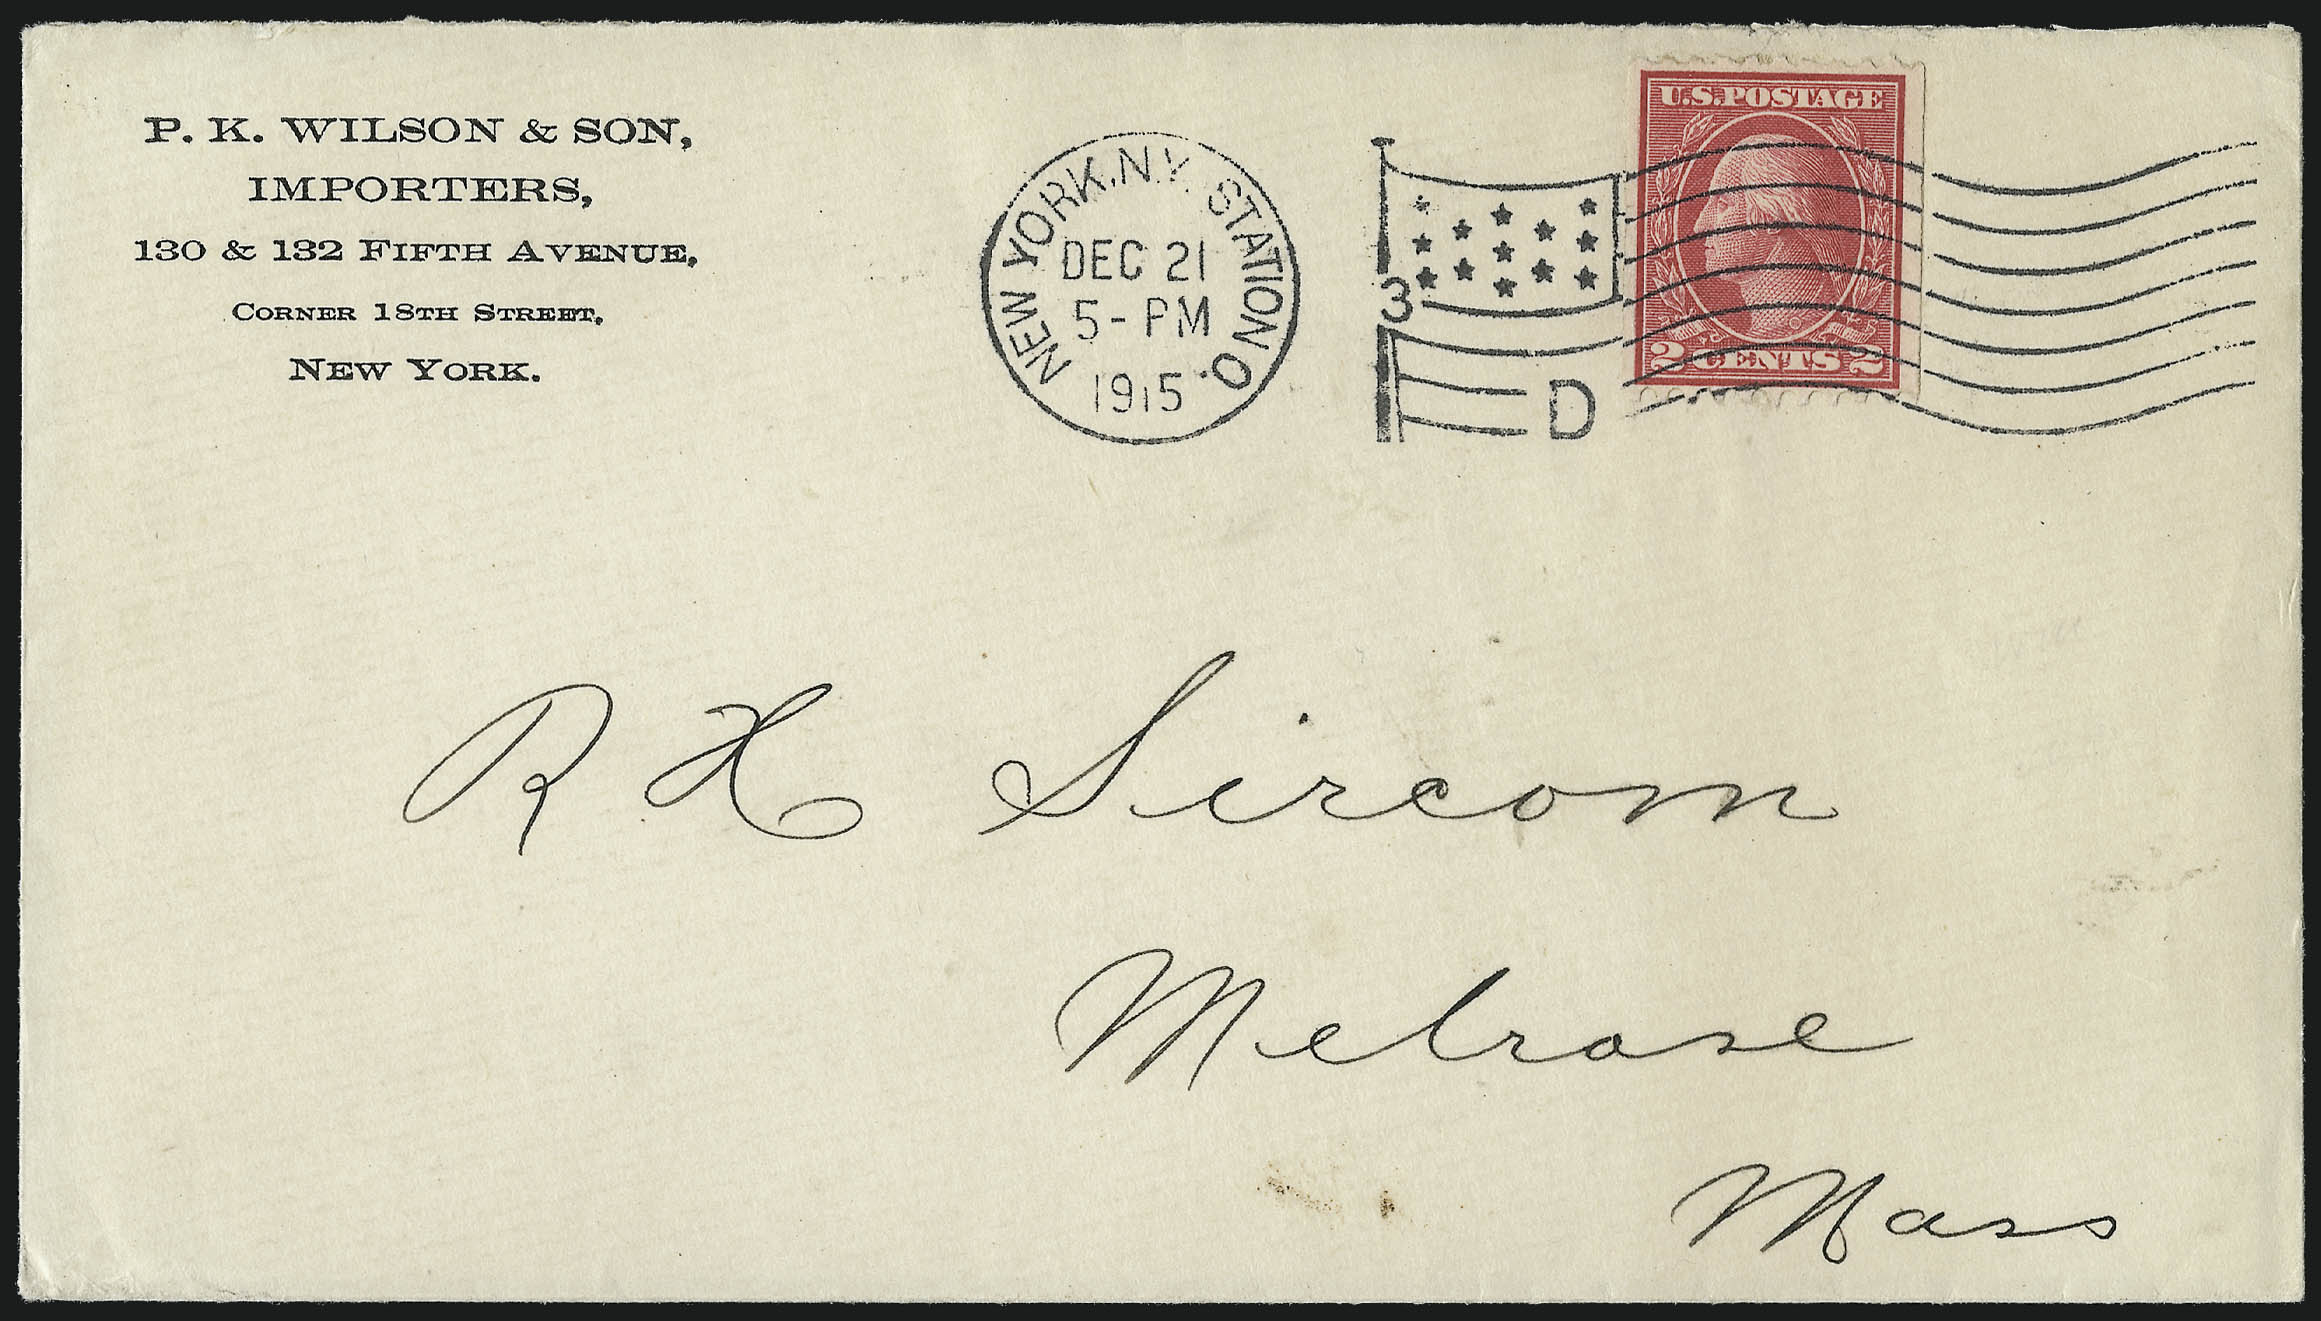 P. K. WILSON & SON,
IMPORTERS,
130 & 132 FIFTH AVENUE,
CORNER 18TH STREET,
NEW YORK.
NEW YORK, N.Y. STATION O.
DEC 21
5 - PM
1915
3
D
U.S. POSTAGE
2 CENTS 2
R H Sircom
Melrose
Mass